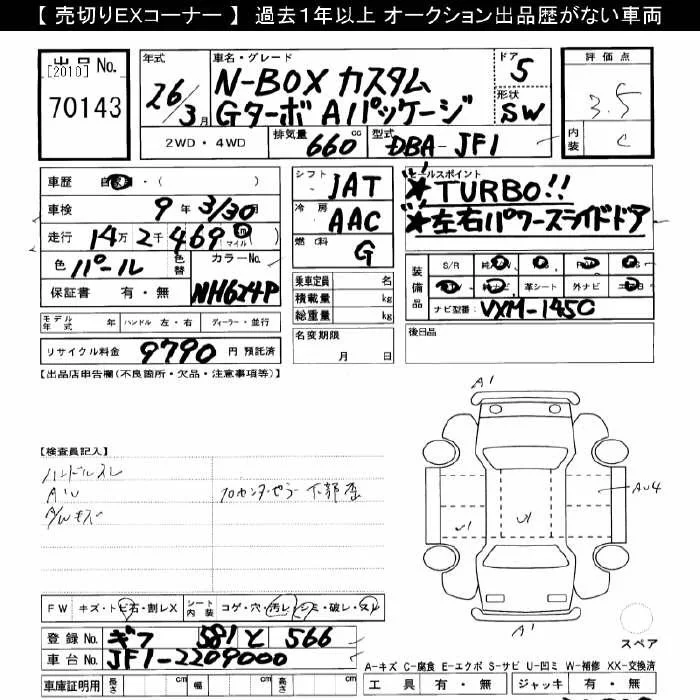 【 売切りEXコーナー 】 過去１年以上 オークション出品歴がない車両
出品 No.
[2010]
70143
年式
26/3月
車名・グレード
N-BOX カスタム
Gターボ Aパッケージ
ドア
5
形状
SW
評価点
3.5
内装
C
2WD・4WD
排気量
660 cc
型式
DBA-JF1
車歴
・( )
車検
9年3/30
走行
14万2千469
マイル
色
パール
色替
カラーNo.
NH624P
保証書 有・無
シフト
IAT
冷房
AAC
燃料
G
セールスポイント
★TURBO!!
★左右パワースライドドア
乗車定員 名
積載量 kg
総重量 kg
装備品
S/R
革シート
外ナビ
ナビ型番
VXM-145C
モデル年式 年
ハンドル 左・右
ディーラー・並行
名変期限
月 日
後日品
リサイクル料金
9790
円 預託済
【出品店申告欄(不良箇所・欠品・注意事項等)】
【検査員記入】
ハンドルスレ
A'U
A/Wキズ
A1
AU4
U1
A1
スペア
FW
キズ・トビ石・割レX
シート内装
コゲ・穴・汚レ・シミ・破レ・スレ
登録No.
ギフ 581 と 566
車台No.
JF1-2209000
A-キズ C-腐食 E-エクボ S-サビ U-凹ミ W-補修 XX-交換済
車庫証明用
長さ cm
幅 cm
高さ cm
工具 有・無
ジャッキ 有・無